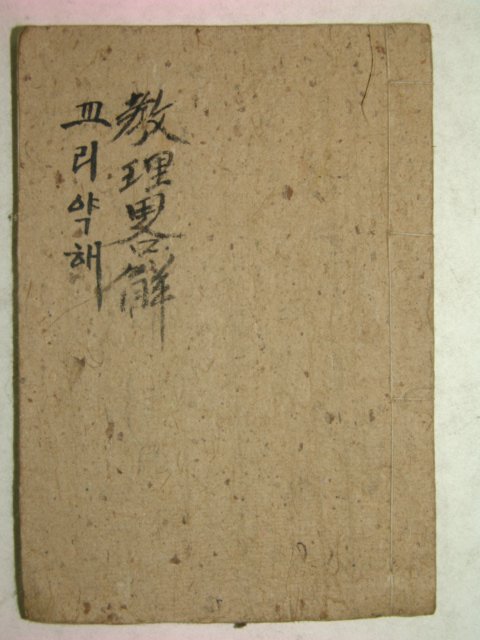 敎理畧解
교리약해